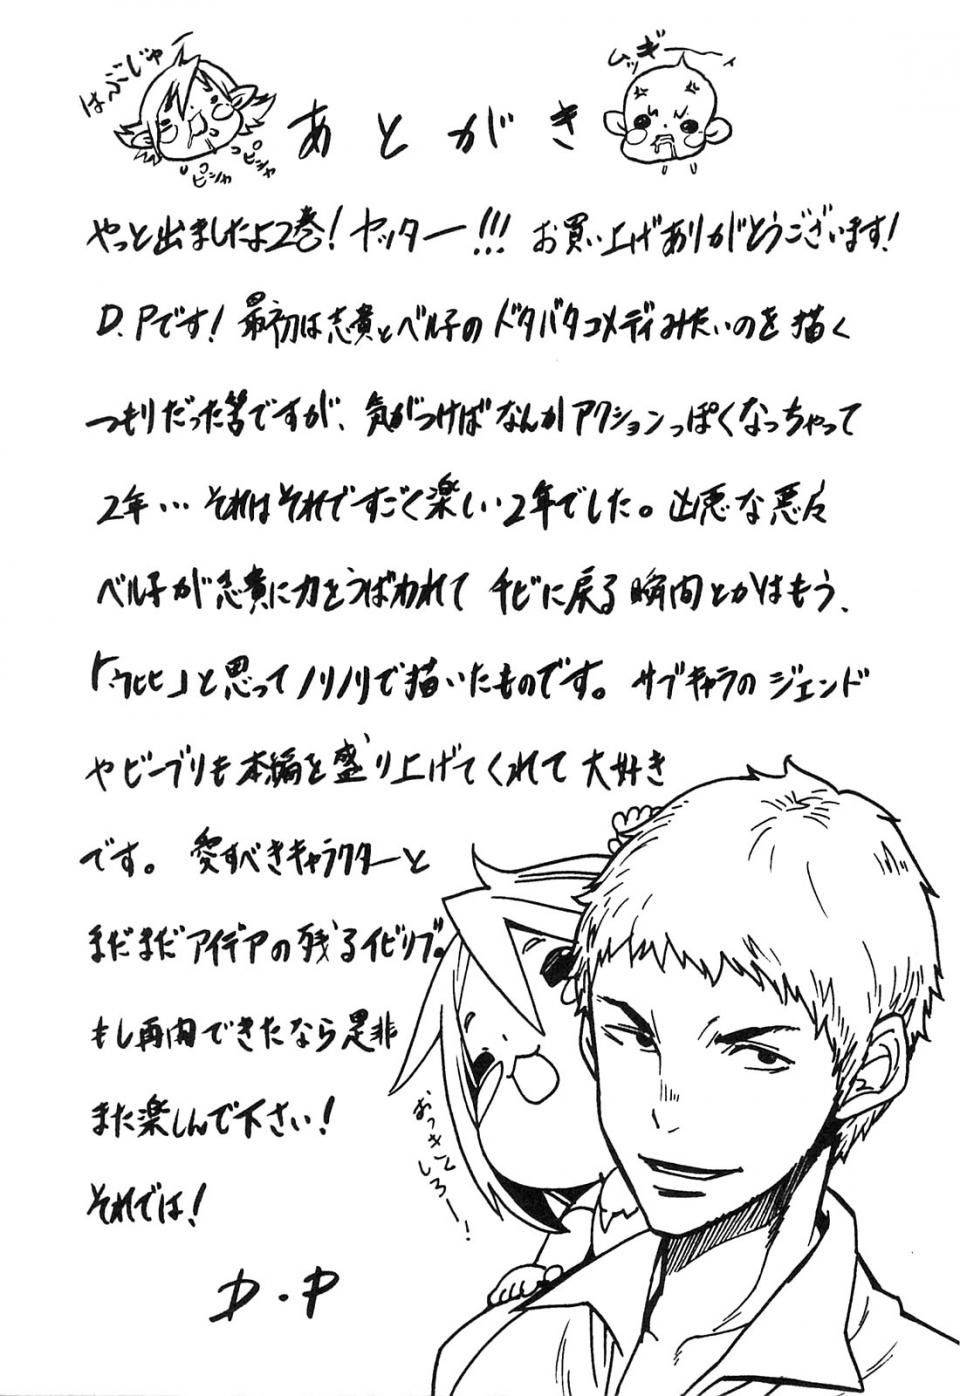 はぶじゅー
ピシャ
ピシャ
あとがき
ムッギーィ
やっと出ましたよ2巻！ヤッター!!!お買い上げありがとうございます！
D.Pです！最初は志貴とベル子のドタバタコメディみたいのを描く
つもりだった筈ですが、気がつけばなんかアクションっぽくなっちゃって
2年…それはそれですごく楽しい2年でした。凶悪な悪々
ベル子が志貴に力をうばわれてチビに戻る瞬間とかはもう、
「ウヒヒ」と思ってノリノリで描いたものです。サブキャラのジェンド
やビーブリも本編を盛り上げてくれて大好き
です。愛すべきキャラクターと
まだまだアイデアの残るイビリブ。
もし再開できたなら是非
また楽しんで下さい！
それでは！
D.P
おっきくしろー！